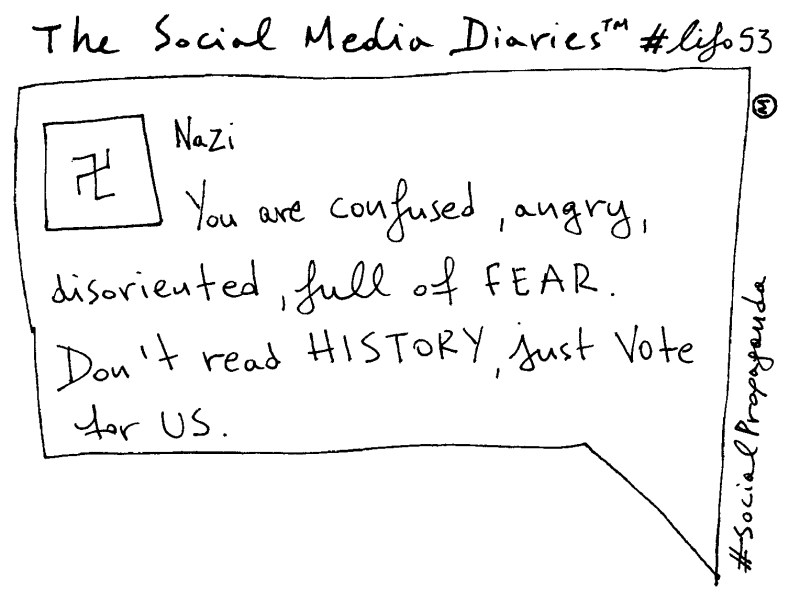 The Social Media Diaries™ #lifo53
Nazi
You are confused, angry,
disoriented, full of FEAR.
Don't read HISTORY, just Vote
for US.
Ⓜ
#socialPropaganda